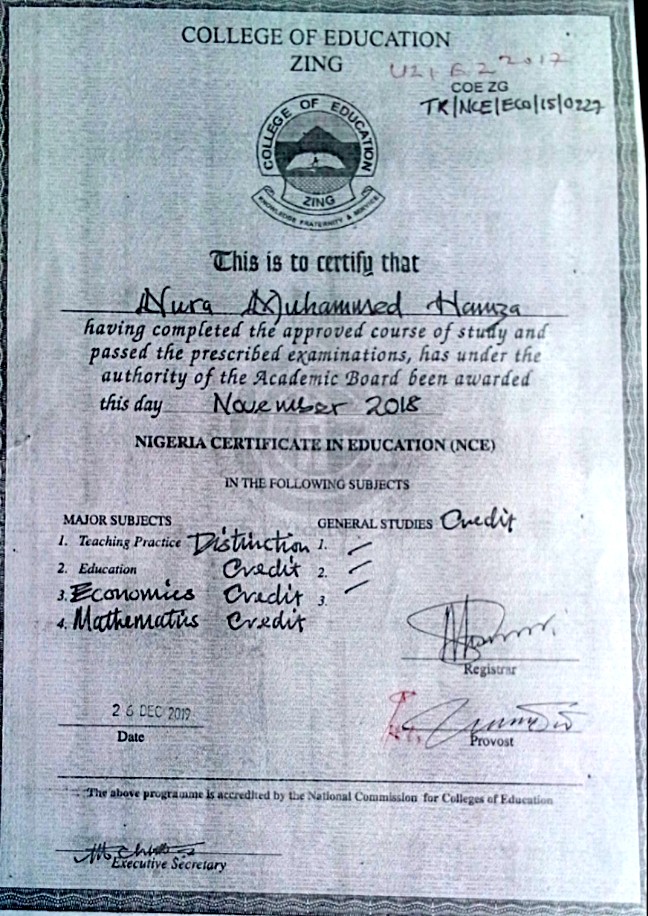 COLLEGE OF EDUCATION
ZING
COE ZG
TR/NCE/ECO/15/0227
COLLEGE OF EDUCATION
ZING
KNOWLEDGE FRATERNITY & SERVICE
This is to certify that
Nura Muhammed Hamza
having completed the approved course of study and
passed the prescribed examinations, has under the
authority of the Academic Board been awarded
this day November 2018
NIGERIA CERTIFICATE IN EDUCATION (NCE)
IN THE FOLLOWING SUBJECTS
MAJOR SUBJECTS
GENERAL STUDIES Credit
1. Teaching Practice Distinction 1.
2. Education Credit 2.
3. Economics Credit 3.
4. Mathematics Credit
Registrar
26 DEC 2019
Date
Provost
The above programme is accredited by the National Commission for Colleges of Education
Executive Secretary